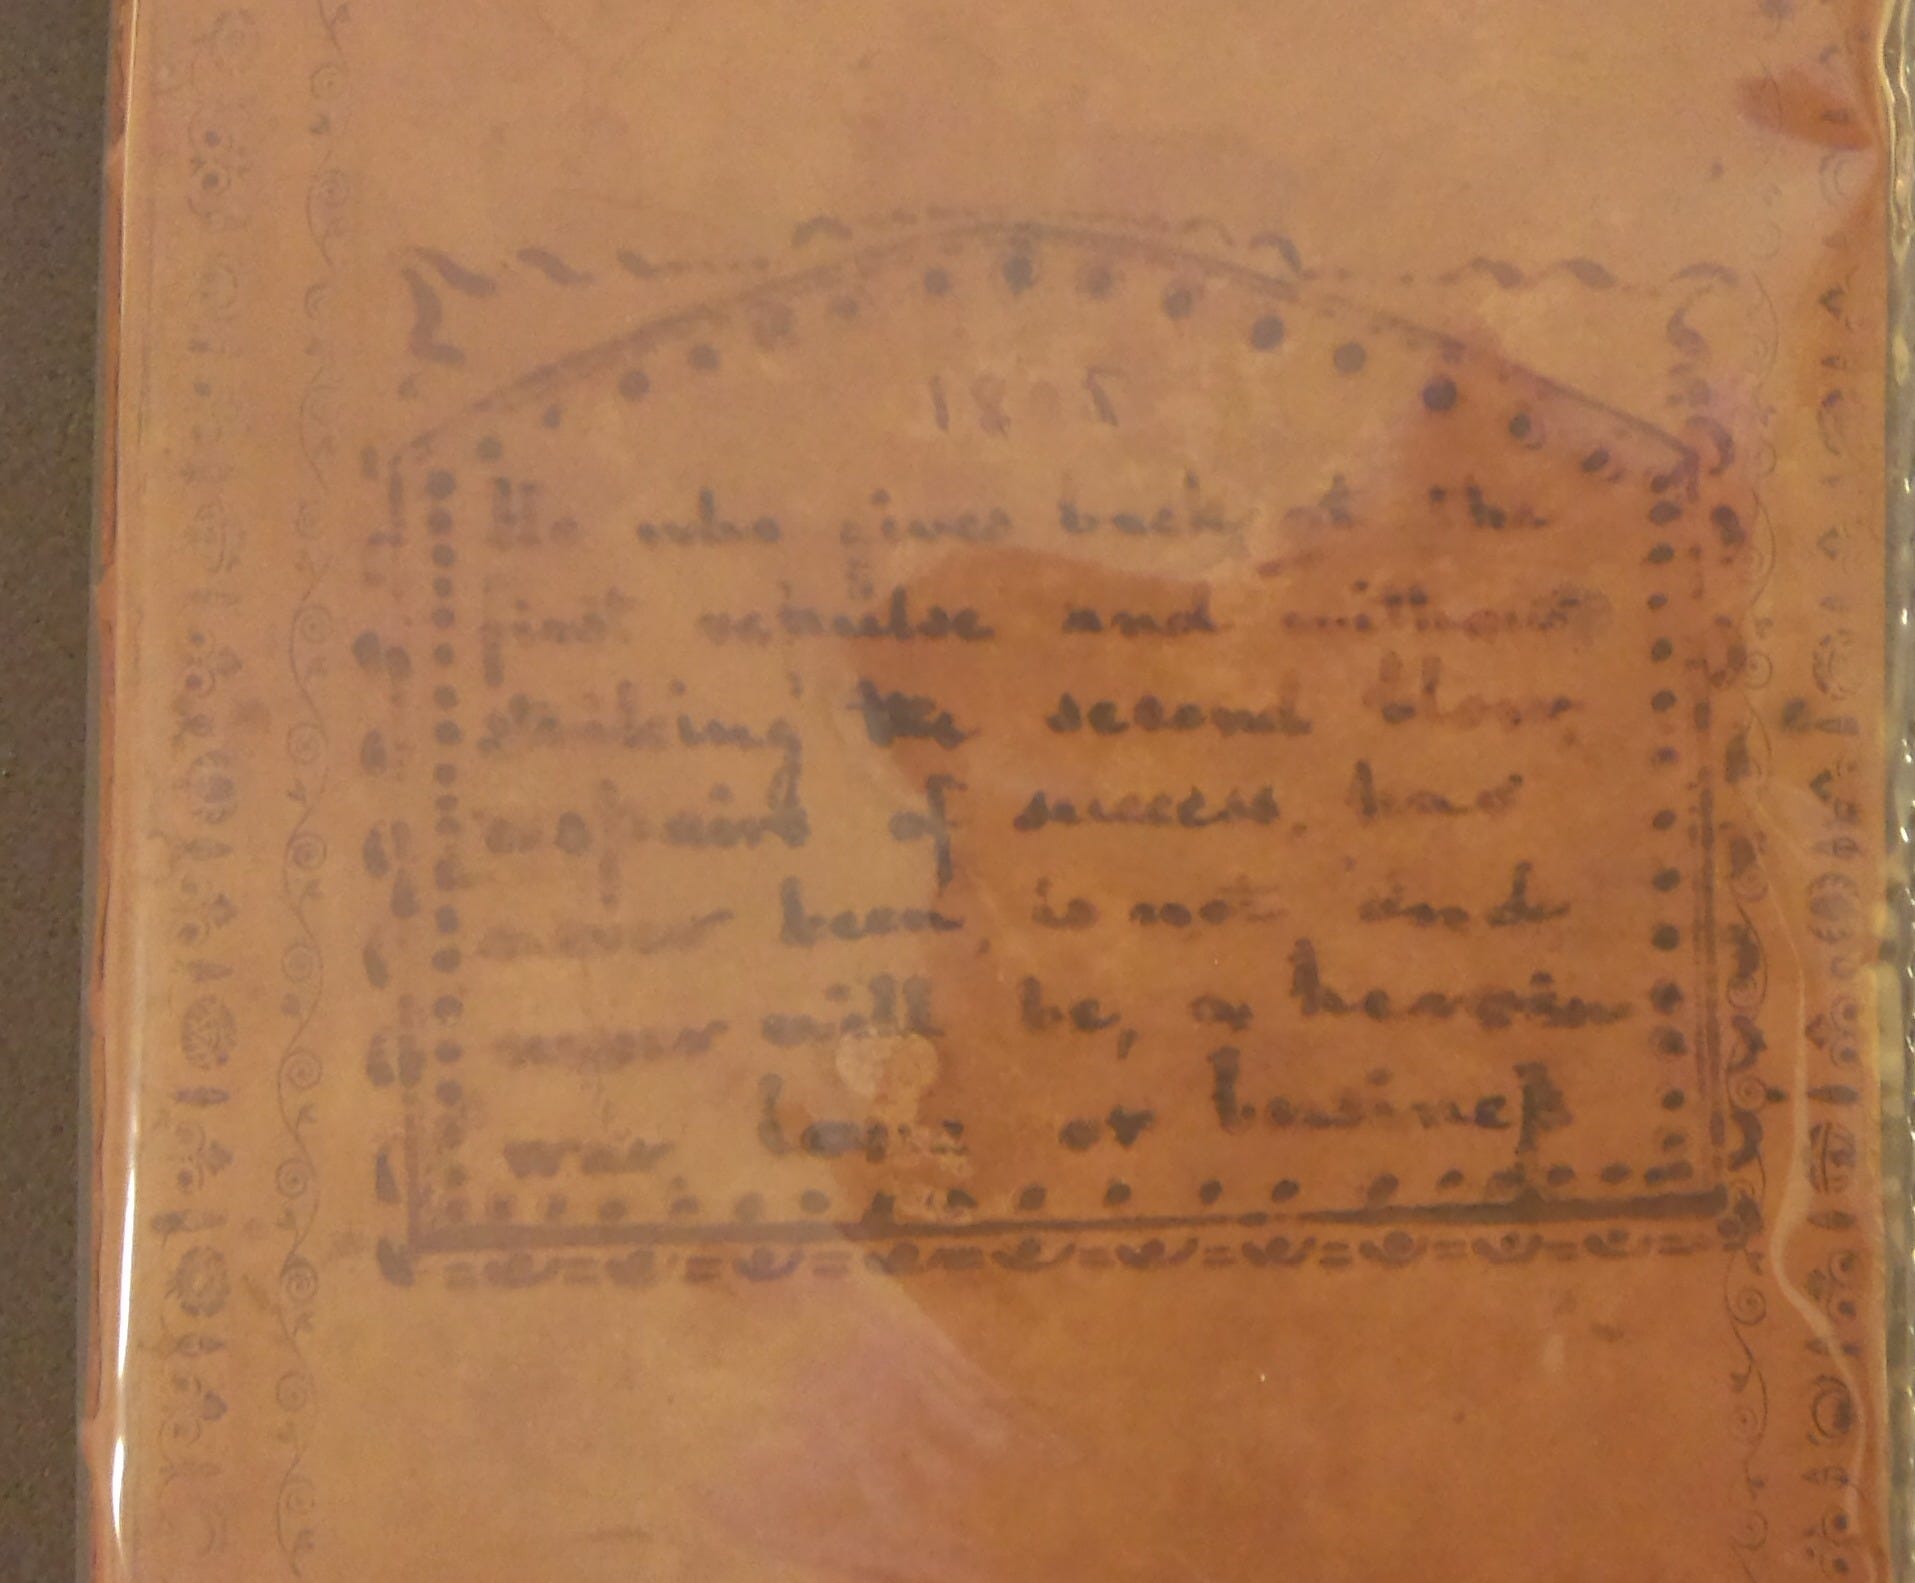 He who gives back at the
first repulse and without
striking the second blow
despairs of success, has
never been, is not and
never will be, a hero in
war, love or businefs